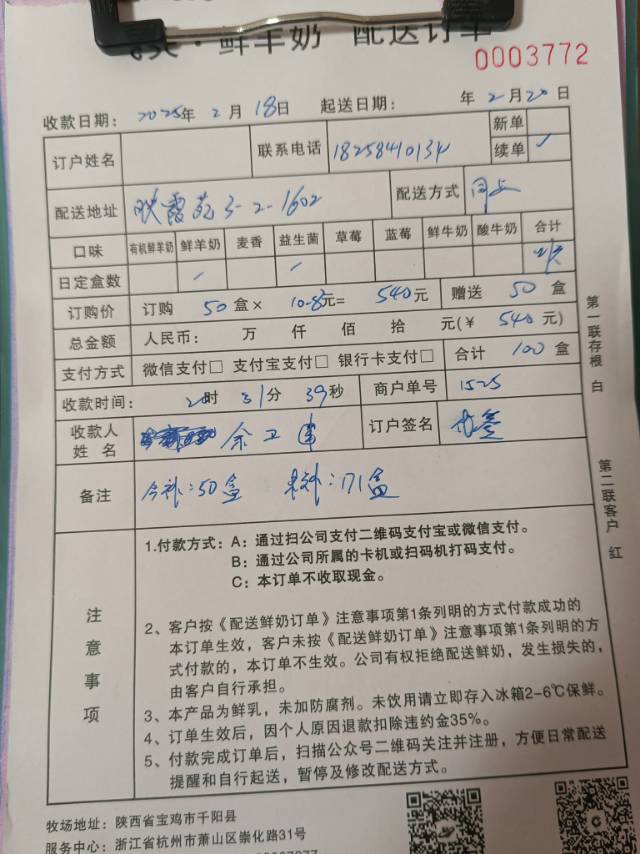 ·鲜羊奶 配送订单
0003772
收款日期： 2025年 2月 18日 起送日期： 年 2月 20日
订户姓名 联系电话 1825841013 新单
续单 ✓
配送地址 映霞苑 3-2-1602 配送方式 同上
口味 有机鲜羊奶 鲜羊奶 麦香 益生菌 草莓 蓝莓 鲜牛奶 酸牛奶 合计
日定盒数
订购价 订购 50 盒× 10.8元= 540 元 赠送 50 盒
总金额 人民币： 万 仟 佰 拾 元(￥ 540 元)
支付方式 微信支付□ 支付宝支付□ 银行卡支付□ 合计 100 盒
收款时间： 20时 31分 39秒 商户单号 1525
收款人姓名 余卫 订户签名
备注 今补：50盒 未补：171盒
注意事项
1.付款方式：A：通过扫公司支付二维码支付宝或微信支付。
B：通过公司所属的卡机或扫码机打码支付。
C：本订单不收取现金。
2、客户按《配送鲜奶订单》注意事项第1条列明的方式付款成功的
本订单生效，客户未按《配送鲜奶订单》注意事项第1条列明的方
式付款的，本订单不生效。公司有权拒绝配送鲜奶，发生损失的，
由客户自行承担。
3、本产品为鲜乳，未加防腐剂。未饮用请立即存入冰箱2-6℃保鲜。
4、订单生效后，因个人原因退款扣除违约金35%。
5、付款完成订单后，扫描公众号二维码关注并注册，方便日常配送
提醒和自行起送，暂停及修改配送方式。
第一联存根 白
第二联客户 红
牧场地址：陕西省宝鸡市千阳县
服务中心：浙江省杭州市萧山区崇化路31号